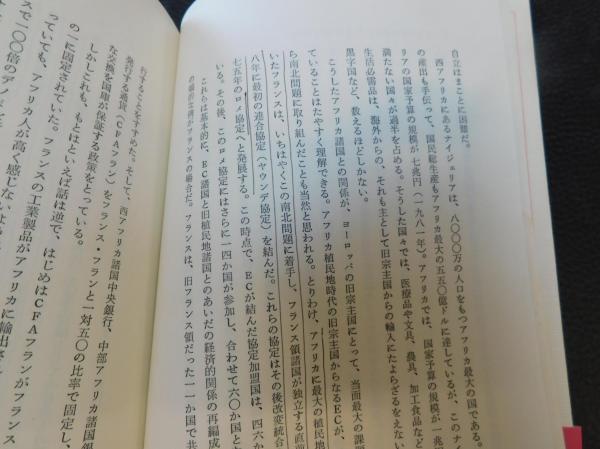 自立はまことに困難だ。
西アフリカにあるナイジェリアは、八〇〇〇万の人口をもつアフリカ最大の国である。
の産出も手伝って、国民総生産もアフリカ最大の五五〇億ドルに達しているが、このナイジ
リアの国家予算の規模が七兆円（一九八一年）。アフリカでは、国家予算の規模が一兆
満たない国々が過半を占める。そうした国々では、医療品や文具、農具、加工食品など
生活必需品は、海外からの、それも主として旧宗主国からの輸入にたよらざるをえない
黒字国など、数えるほどしかない。
こうしたアフリカ諸国との関係が、ヨーロッパの旧宗主国にとって、当面最大の課題
ていることはたやすく理解できる。アフリカ植民地時代の旧宗主国からなるECが、
ら南北問題に取り組んだことも当然と思われる。とりわけ、アフリカに最大の植民地
いたフランスは、いちはやくこの南北問題に着手し、フランス領諸国が独立する直前
八年に最初の連合協定（ヤウンデ協定）を結んだ。これらの協定はその後改変統合
七五年のロメ協定へと発展する。この時点で、ECが結んだ協定加盟国は、四六か
いる。その後、このロメ協定にはさらに一四か国が参加し、合わせて六〇か国と
これらは基本的に、EC諸国と旧植民地諸国とのあいだの経済的関係の再編成
フランスの場合だ。フランスは、旧フランス領だった一一か国で共
行することをすすめた。そして、西アフリカ諸国中央銀行、中部アフリカ諸国銀
発行する通貨（CFAフラン）をフランス・フランと一対五〇の比率で固定し、
な交換を国庫が保証する政策をとっている。
しかしこれも、もとはといえば話は逆で、はじめはCFAフランがフランス
の一に固定されていた。フランスの工業製品がアフリカに輸出さ
っていても、アフリカ人が高く感じないよ
スで一〇〇倍のデノ